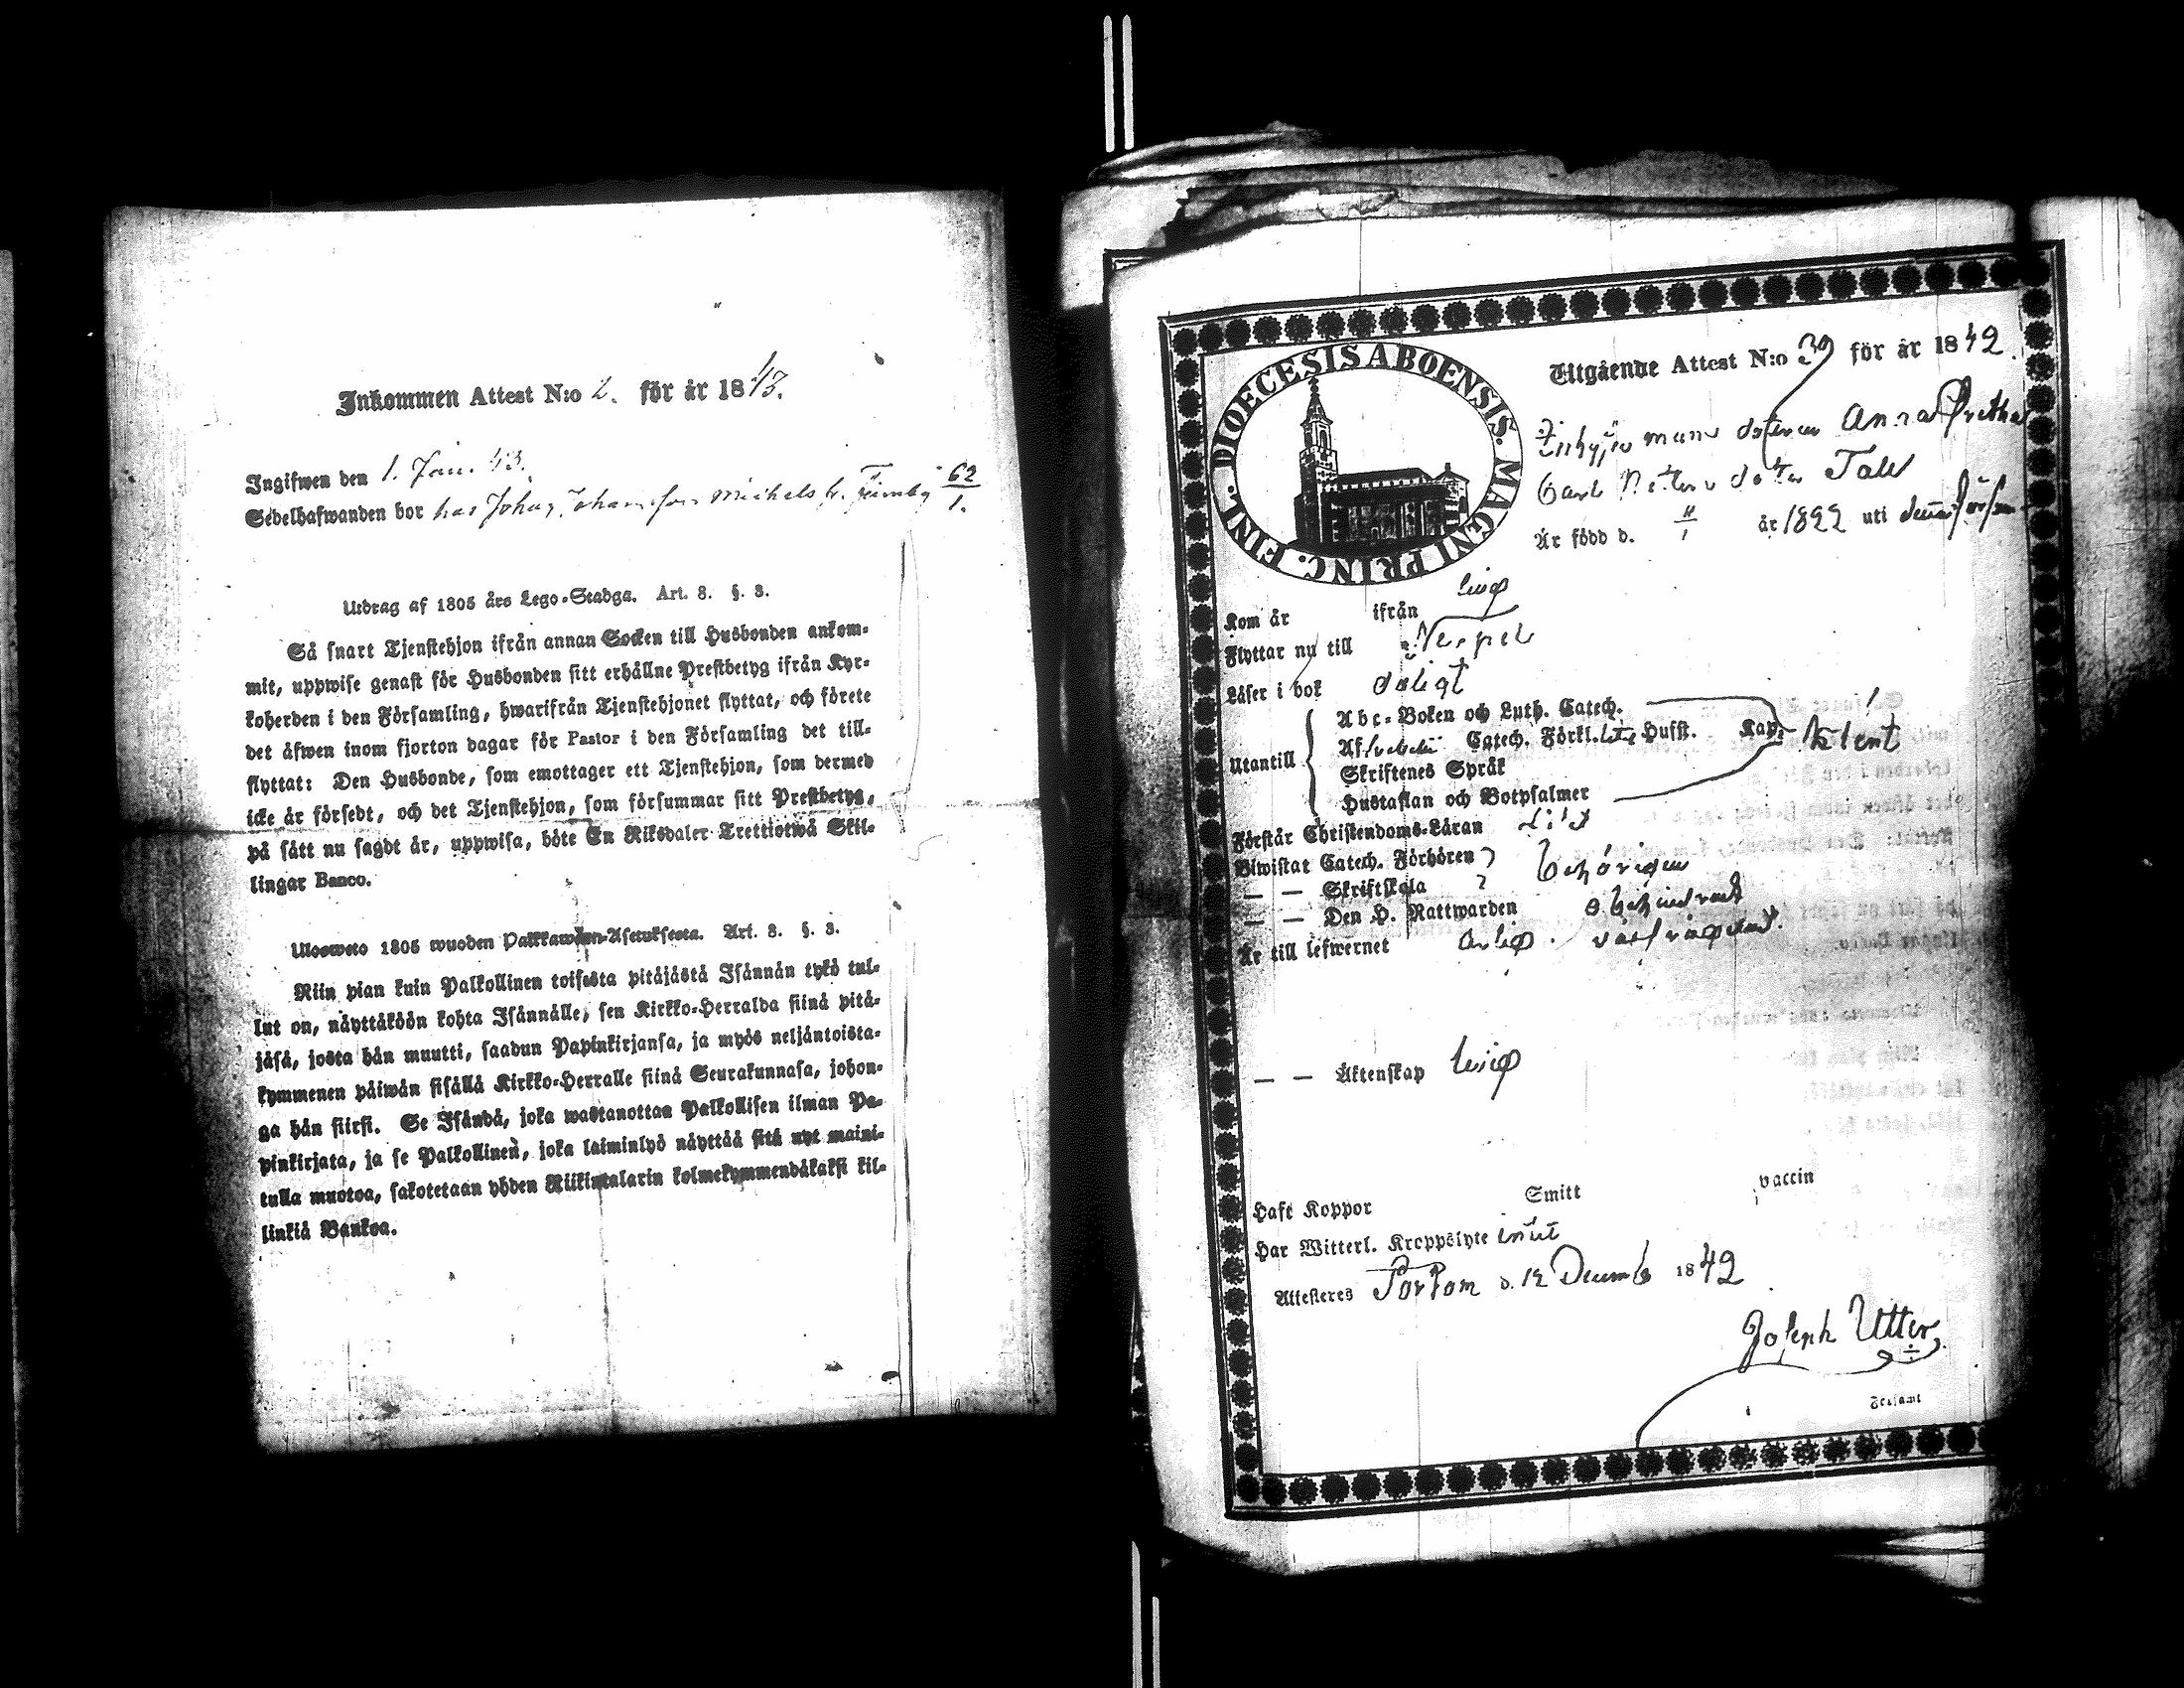 Inkommen Attest N:o 2. för år 1843.
Ingifwen den 1. Jan. 43.
Sedelhafwanden bor hos Johan Johansson Michels h. Finnby 62/1.
Utdrag af 1805 års Lego-Stadga. Art. 8. §. 3.
Så snart Tjenstehjon ifrån annan Socken till Husbonden ankom-
mit, uppwise genast för Husbonden sitt erhållne Prestbetyg ifrån Kyr-
koherden i den Församling, hwarifrån Tjenstehjonet flyttat, och förete
det åfwen inom fjorton dagar för Pastor i den Församling det till-
flyttat: Den Husbonde, som emottager ett Tjenstehjon, som dermed
icke är försedt, och det Tjenstehjon, som försummar sitt Prestbetyg,
på sätt nu sagdt är, uppwisa, böte En Riksdaler Trettiotwå Skil-
lingar Banco.
Ulosweto 1805 wuoden Palkkawäen-Asetuksesta. Art. 8. §. 3.
Niin pian kuin Palkollinen toisesta pitäjästä Isännän tykö tul-
lut on, näyttäköön kohta Isännälle, sen Kirkko-Herralda siinä pitä-
jäsä, josta hän muutti, saadun Papinkirjansa, ja myös neljäntoista-
kymmenen päiwän sisällä Kirkko-Herralle siinä Seurakunnasa, johon-
ga hän siirsi. Se Isändä, joka wastanottaa Palkollisen ilman Pa-
pinkirjata, ja se Palkollinen, joka laiminlyö näyttää sitä nyt maini-
tulla muotoa, sakotetaan yhden Riikintalarin kolmekymmendäkaksi kil-
linkiä Bankoa.
DIOECESIS ABOENSIS. MAGNI PRINC. FINL.
Utgående Attest N:o 39 för år 1842.
dotren Anna Gretha
Carl dotter Tall
Är född d. 11/1 år 1822 uti denna förs
Kom år ifrån
Flyttar nu till Nerpes
Läser i bok
Utantill
Abc-Boken och Luth. Catech.
Af Catech. Förkl. Husst. Kap.
Skriftenes Språk
Hustaflan och Botpsalmer
Förstår Christendoms-Läran
Biwistat Catech. Förhören behörigen
— — Skriftskola
— — Den H. Nattwarden obehindrad
Är till lefwernet ärlig.
— — Äktenskap ledig
Haft Koppor Smitt vaccin
Har Witterl. Kroppslyte intet
Attesteres Pörtom d. 12 Decemb 1842
Joseph Utter